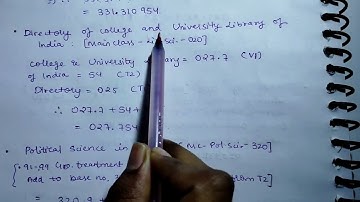 = 331.310954.
• Directory of college and University Library of
India : [Main class - Sci. - 020]
College & University = 027.7 (VI)
of India = 54 (T2)
Directory = 025 (T
∴ 027.7 + 54 +
= 027.754
• Political Science in - Pol Sci. - 320]
treatment
Add to base no. T2]